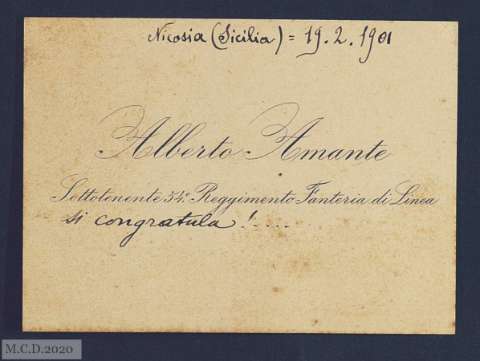 Nicosia (Sicilia) = 19.2.1901
Alberto Amante
Sottotenente 54º Reggimento Fanteria di Linea
si congratula !.....
M.C.D.2020